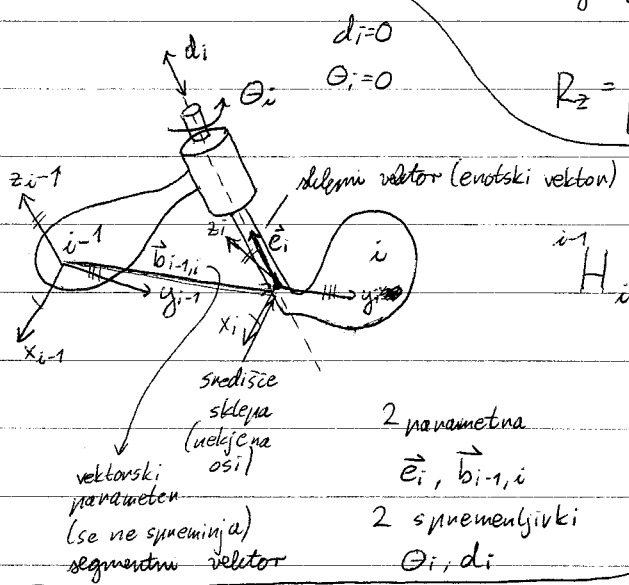 dᵢ=0
Θᵢ=0
R_z =
dᵢ
Θᵢ
sklepni vektor (enotski vektor)
z_{i-1}
i-1
zᵢ
e⃗ᵢ
i
b⃗_{i-1,i}
y_{i-1}
yᵢ
x_{i-1}
xᵢ
^{i-1}H_i
središče
sklepa
(nekje na
osi)
vektorski
parameter
(se ne spreminja)
segmentni vektor
2 parametra
e⃗ᵢ, b⃗_{i-1,i}
2 spremenljivki
Θᵢ, dᵢ